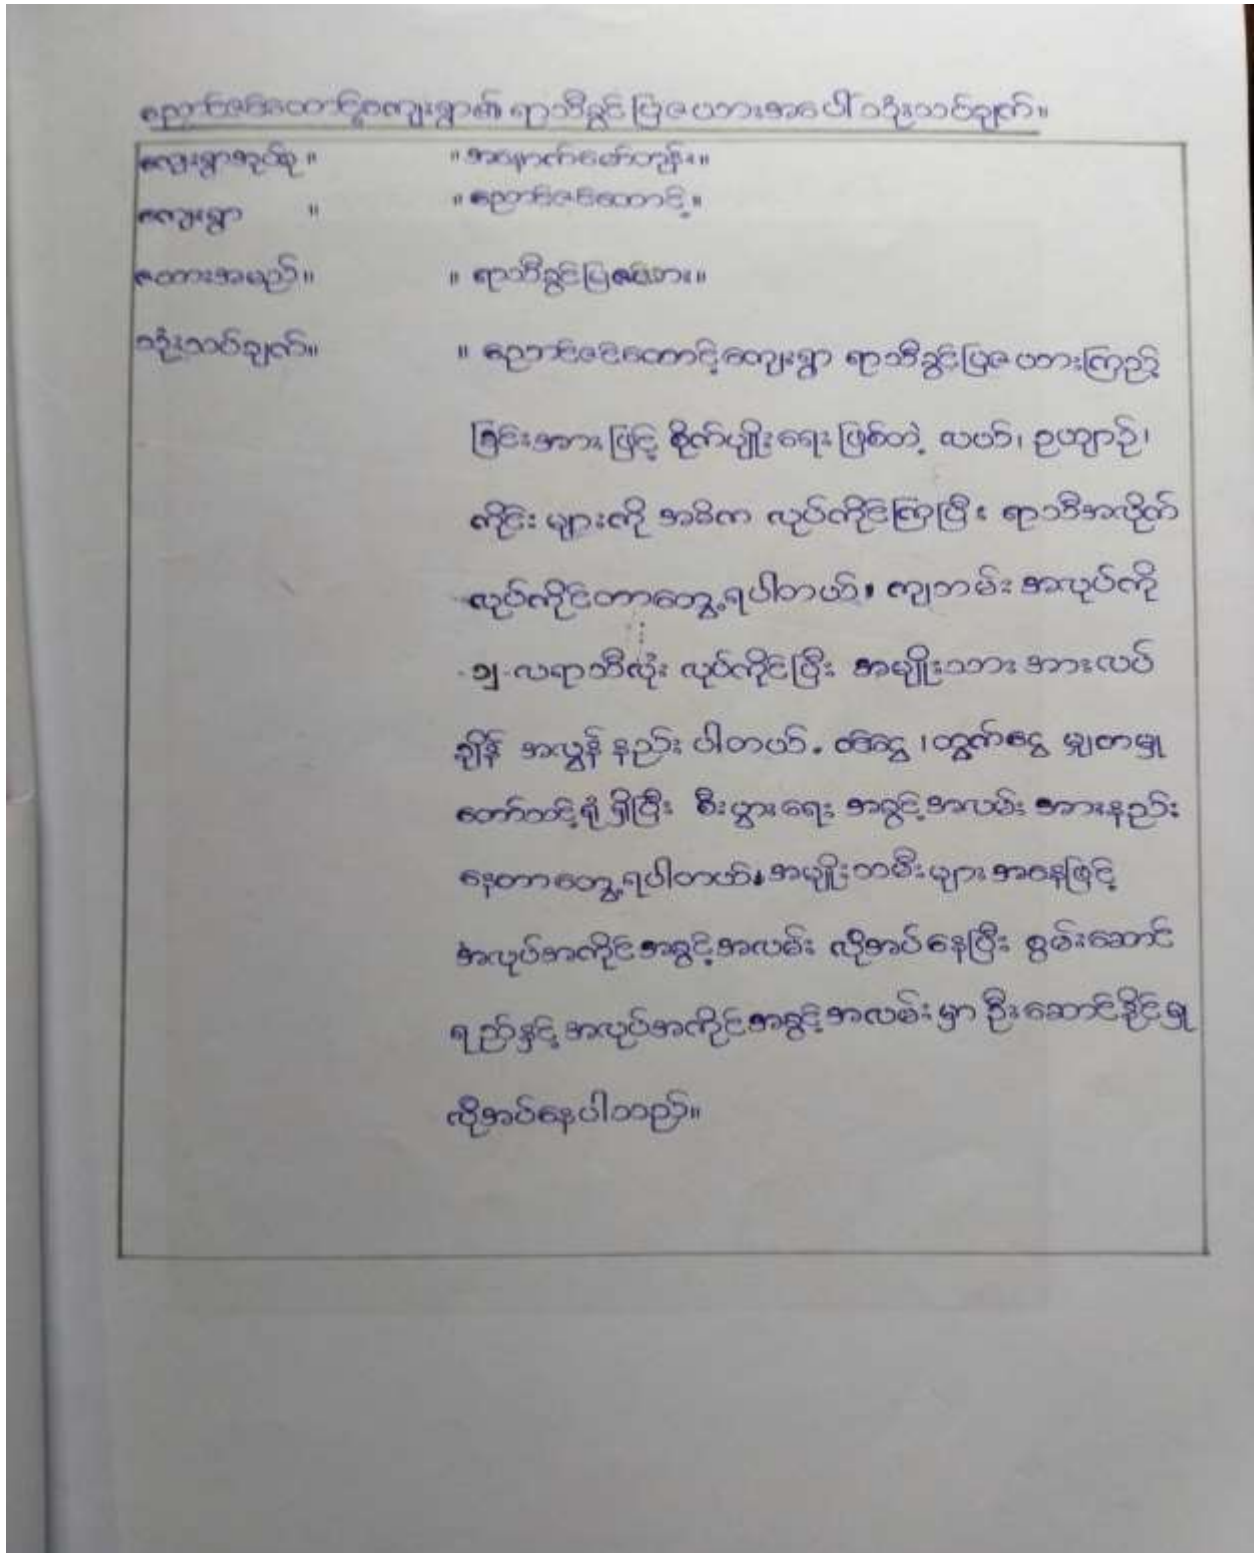 ညောင်ဇင်ထောင့်ကျေးရွာ၏ ရာသီခွင်ပြဇယားအပေါ် သုံးသပ်ချက်။
ကျေးရွာအုပ်စု။ ။ အနောက်ဖော်တွန်း။
ကျေးရွာ ။ ။ ညောင်ဇင်ထောင့်။
ဇယားအမည်။ ။ ရာသီခွင်ပြဇယား။
သုံးသပ်ချက်။ ။ ညောင်ဇင်ထောင့်ကျေးရွာ ရာသီခွင်ပြဇယားကြည့်
ခြင်းအားဖြင့် စိုက်ပျိုးရေးဖြစ်တဲ့ လယ်၊ ဥယျာဉ်၊
ကိုင်းများကို အဓိက လုပ်ကိုင်ကြပြီး ရာသီအလိုက်
လုပ်ကိုင်တာတွေ့ရပါတယ်။ ကျဘမ်းအလုပ်ကို
၁၂ လရာသီလုံး လုပ်ကိုင်ပြီး အမျိုးသားအားလပ်
ချိန် အလွန်နည်းပါတယ်။ ဝင်ငွေ၊ထွက်ငွေ မျှတမှု
တော်သင့်ရုံရှိပြီး စီးပွားရေး အခွင့်အလမ်း အားနည်း
နေတာတွေ့ရပါတယ်။ အမျိုးသမီးများအနေဖြင့်
အလုပ်အကိုင်အခွင့်အလမ်း လိုအပ်နေပြီး စွမ်းဆောင်
ရည်နှင့် အလုပ်အကိုင်အခွင့်အလမ်းမှာ ဦးဆောင်နိုင်မှု
လိုအပ်နေပါသည်။